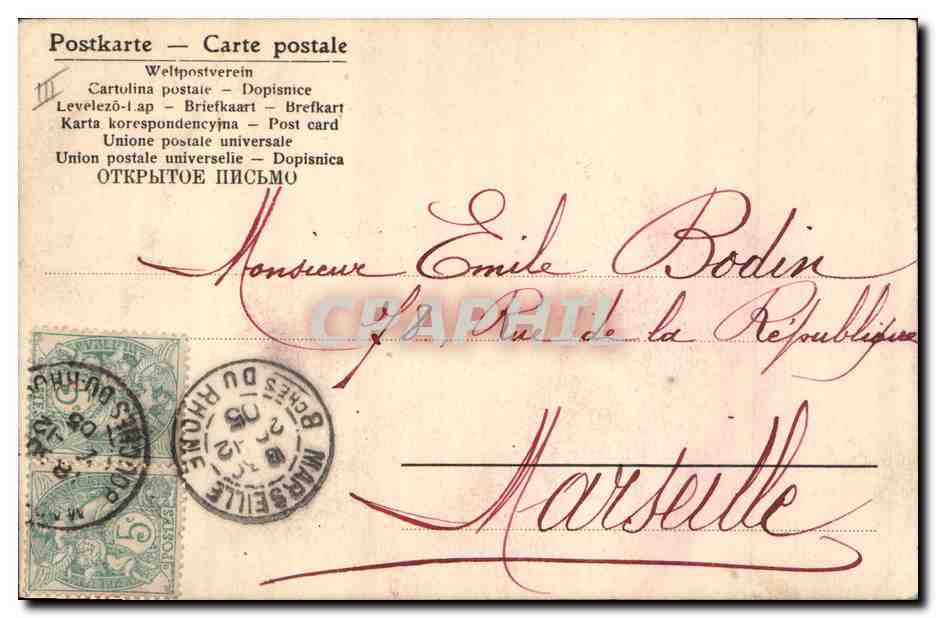 Postkarte — Carte postale
Weltpostverein
Cartolina postale — Dopisnice
Levelezö-Lap — Briefkaart — Brefkart
Karta korespondencyjna — Post card
Unione postale universale
Union postale universelle — Dopisnica
ОТКРЫТОЕ ПИСЬМО
III
Monsieur Emile Bodin
78, Rue de la République
Marseille
CPAPHIL
MARSEILLE
BCHES DU RHONE
05
5c